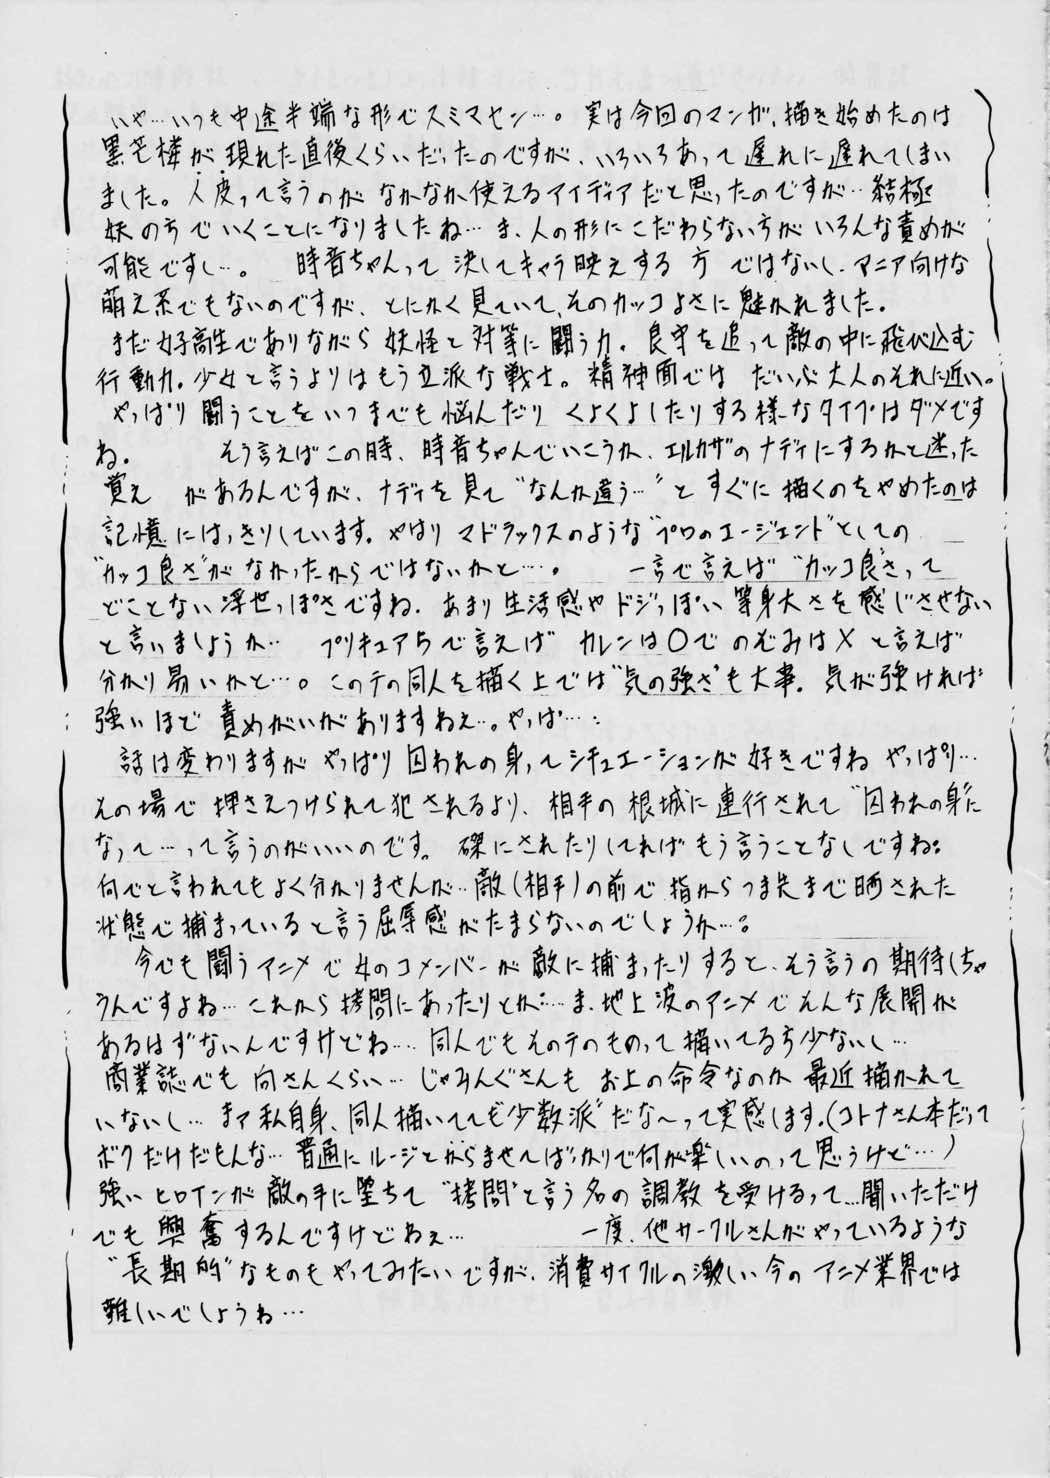 いや…いつも中途半端な形でスミマセン…。実は今回のマンガ、描き始めたのは
黒芒楼が現れた直後くらいだったのですが、いろいろあって遅れに遅れてしまい
ました。人皮って言うのがなかなか使えるアイディアだと思ったのですが…結極
妖の方でいくことになりましたね…ま、人の形にこだわらない方がいろんな責めが
可能ですし…。 時音ちゃんって決してキャラ映えする方ではないし、マニア向けな
萌え系でもないのですが、とにかく見ていて、そのカッコよさに魅かれました。
まだ女子高生でありながら妖怪と対等に闘う力。良守を追って敵の中に飛び込む
行動力。少女と言うよりはもう立派な戦士。精神面ではだいぶ大人のそれに近い。
やっぱり闘うことをいつまでも悩んだりくよくよしたりする様なタイプはダメです
ね。 そう言えばこの時、時音ちゃんでいこうか、エルカザのナディにするかと迷った
覚えがあるんですが、ナディを見て“なんか違う…”とすぐに描くのをやめたのは
記憶にはっきりしています。やはりマドラックスのような“プロのエージェント”としての
“カッコ良さ”がなかったからではないかと…。 一言で言えば“カッコ良さ”って
どことない浮世っぽさですね。あまり生活感やドジっぽい等身大さを感じさせない
と言いましょうか… プリキュア5で言えばカレンは○でのぞみは×と言えば
分かり易いかと…。このテの同人を描く上では“気の強さ”も大事。気が強ければ
強いほど責めがいがありますねぇ…。やっぱ…
話は変わりますがやっぱり囚われの身ってシチュエーションが好きですねやっぱり…
その場で押さえつけられて犯されるより、相手の根城に連行されて“囚われの身”に
なって…って言うのがいいのです。磔にされたりしてればもう言うことなしですね。
何でと言われてもよく分かりませんが…敵(相手)の前で指からつま先まで晒された
状態で捕まっていると言う屈辱感がたまらないのでしょうか…。
今でも闘うアニメで女のコメンバーが敵に捕まったりすると、そう言うの期待しちゃ
うんですよね…これから拷問にあったりとか…ま、地上波のアニメでそんな展開が
あるはずないんですけどね…同人でもそのテのものって描いてる方少ないし…
商業誌でも向さんくらい…じゃみんぐさんもお上の命令なのか最近描かれて
いないし…まァ私自身、同人描いてても“少数派”だな〜って実感します。(コトナさん本だって
ボクだけだもんな…普通にルージとからませてばっかりで何が楽しいのって思うけど…)
強いヒロインが敵の手に堕ちて“拷問”と言う名の調教を受けるって…聞いただけ
でも興奮するんですけどねぇ… 一度、他サークルさんがやっているような
“長期的”なものもやってみたいですが、消費サイクルの激しい今のアニメ業界では
難しいでしょうね…